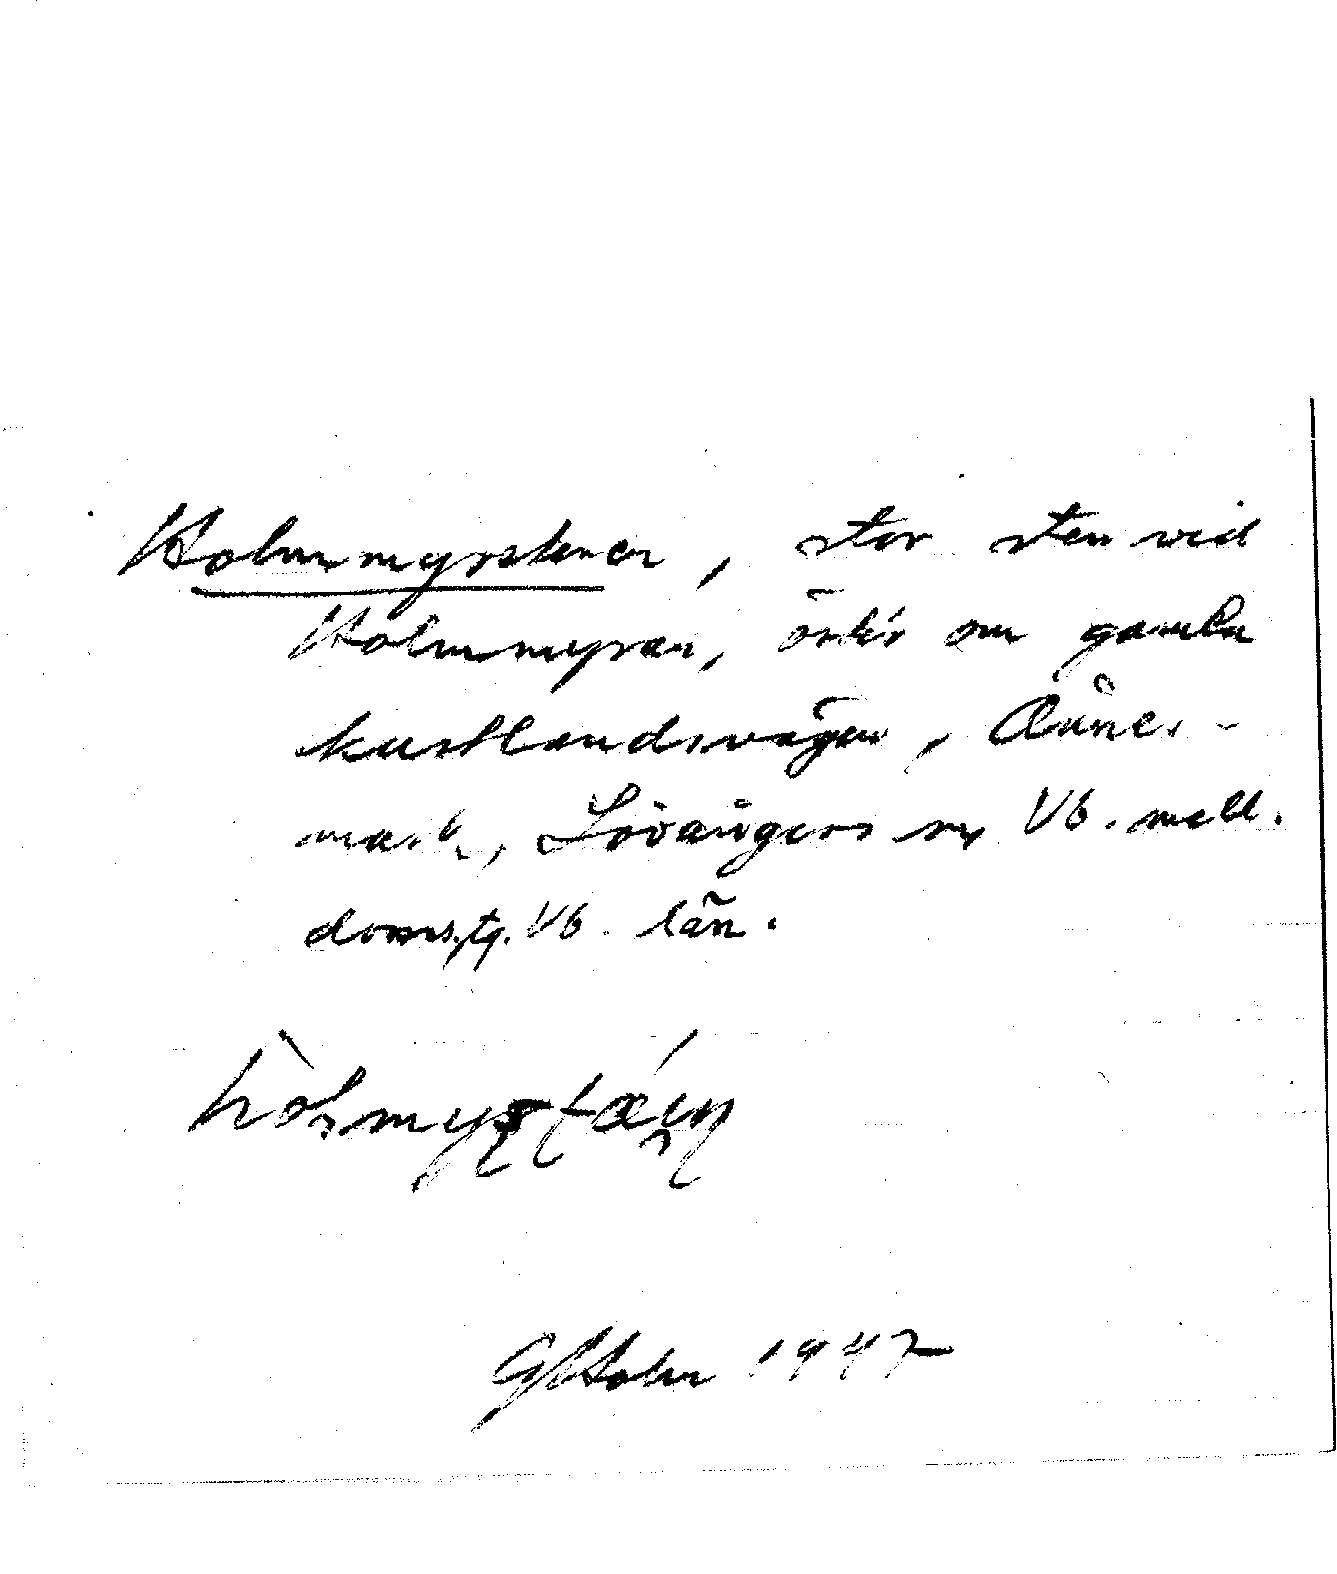 Holmmyrstenen, stor sten vid
Holmmyran, öster om gamla
kustlandsvägen, Ånäs-
mark, Lövångers sn Vb. mell.
doms.tg. Vb. län.
GHolm 1947